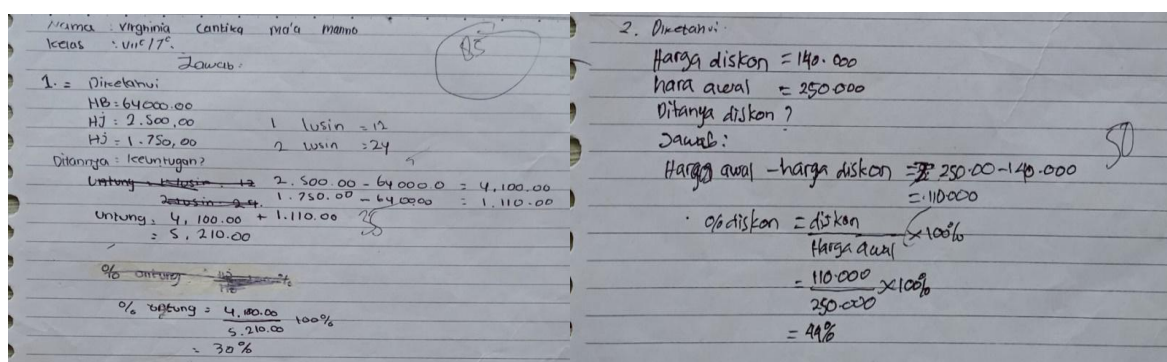 Nama : Virghinia Cantika Ma'a Manno
Kelas : VIIC/7C.
Jawab:
85
1. = Diketahui
HB : 64000.00
HJ : 2.500,00
HJ : 1.750,00
1 lusin = 12
2 lusin = 24
Ditannya : keuntugan?
2.500.00 - 64000.0 = 4,100.00
1.750.00 - 640000 = 1.110.00
Untung : 4,100.00 + 1.110.00
= 5.210.00
% untung = 4,100.00
5.210.00 100%
= 30%
2. Diketahui.
Harga diskon = 140.000
hara awal = 250.000
Ditanya diskon ?
Jawab:
50
Harga awal - harga diskon = 250.00-140.000
= 110000
% diskon = diskon × 100%
Harga awal
= 110.000 ×100%
250.000
= 44%